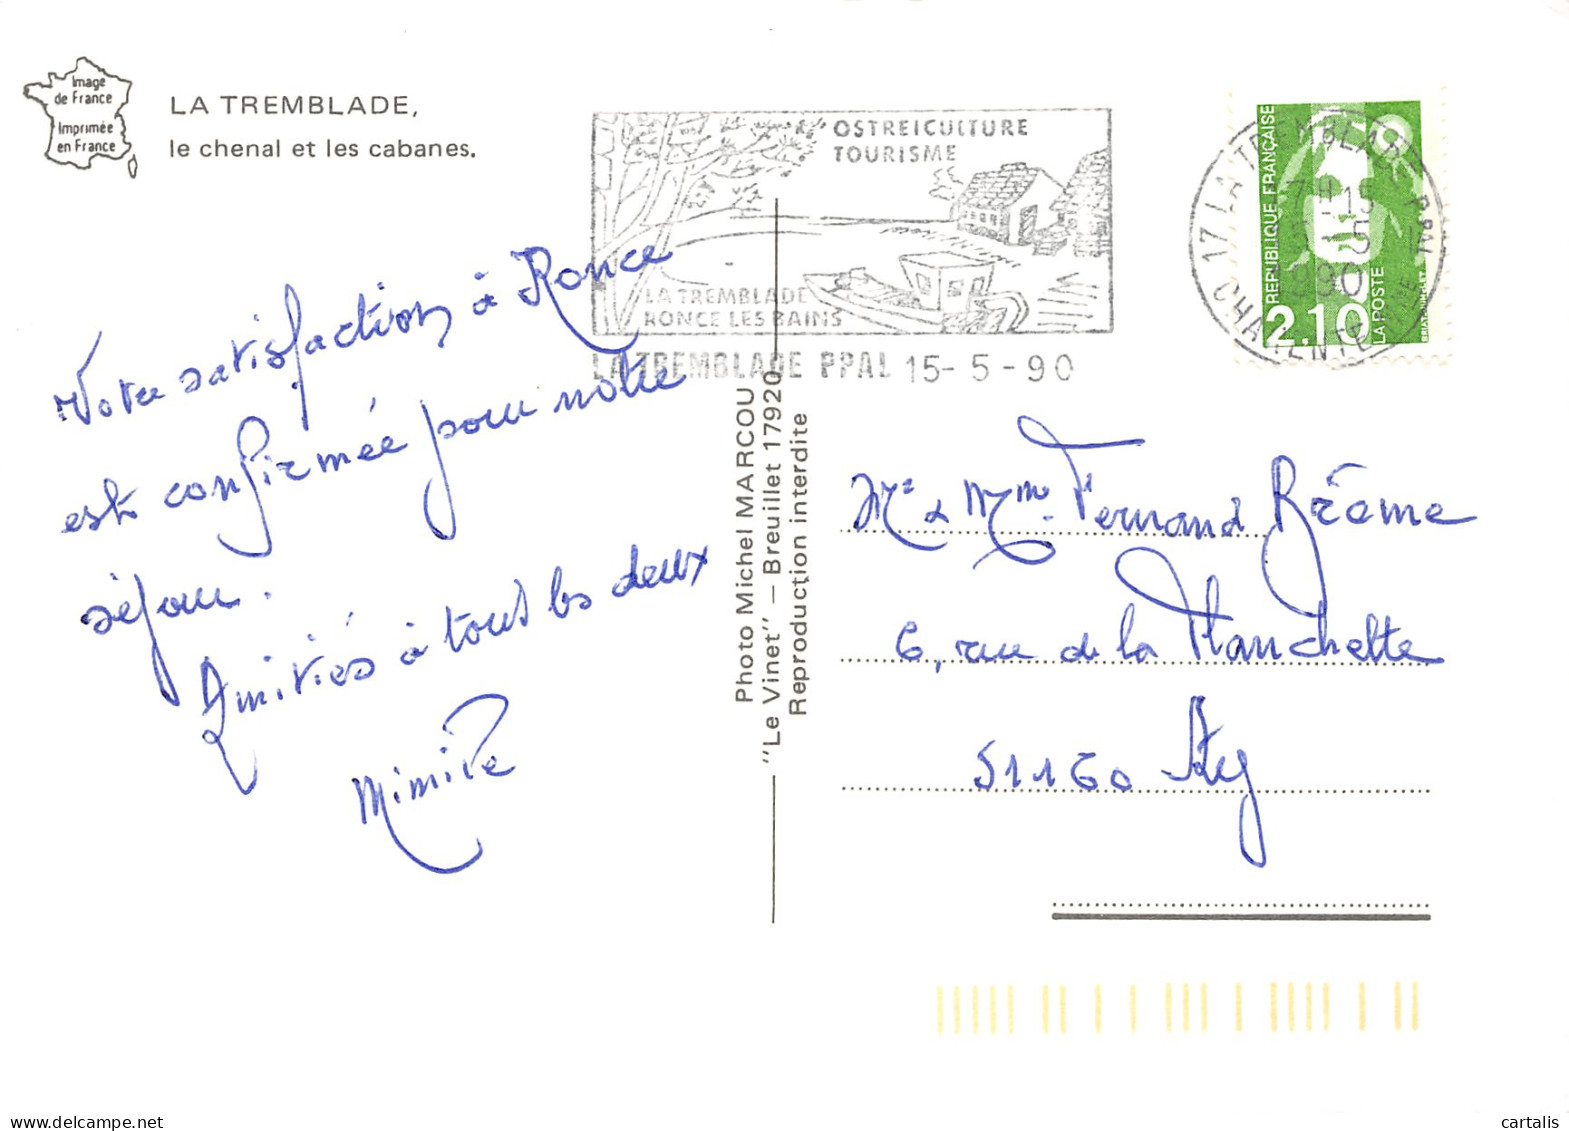 Image
de France
Imprimée
en France
LA TREMBLADE,
le chenal et les cabanes.
OSTREICULTURE
TOURISME
LA TREMBLADE
RONCE LES BAINS
LA TREMBLADE PPAL 15-5-90
17 LA TREMBLADE PPAL
15-5
1990
CHARENTE-MME
REPUBLIQUE FRANÇAISE
2.10
LA POSTE
Votre satisfaction à Ronce
est confirmée pour notre
séjour.
Amitiés à tous les deux
Photo Michel MARCOU
"Le Vinet" — Breuillet 17920
Reproduction interdite
Mr & Mme Fernand
6, rue de la Planchette
51160 Ay
cartalis
www.delcampe.net